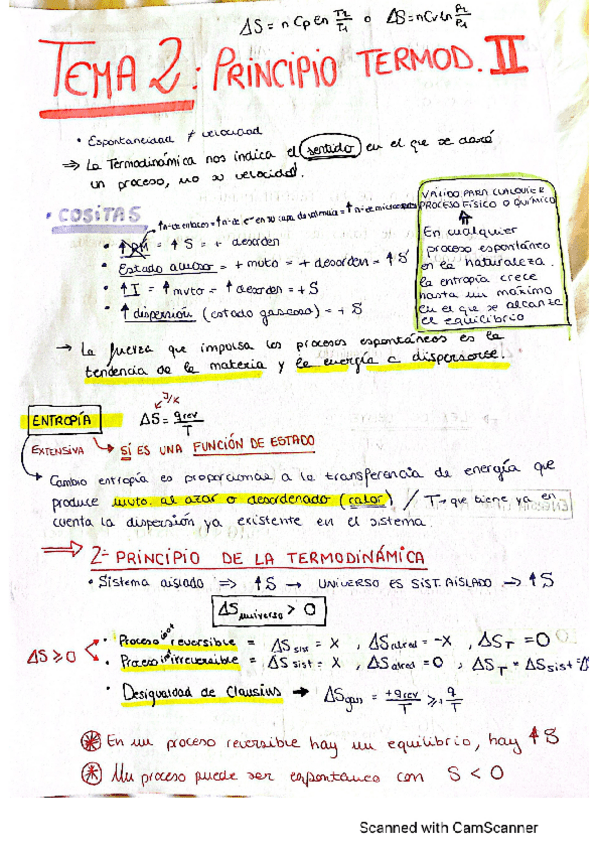 ΔS = n Cp Ln T2/T1 o ΔS = n Cv Ln P2/P1
TEMA 2: PRINCIPIO TERMOD. II
• Espontaneidad ≠ velocidad
⇒ La Termodinámica nos indica el sentido en el que se dará
un proceso, no su velocidad.
• COSITAS
↑nº de enlaces = ↑nº de e⁻ en su capa de valencia = ↑ nº de
• ↑PM = ↑S = + desorden
• Estado acuoso = + mvto = + desorden = ↑S
• ↑T = ↑mvto = ↑desorden = + S
• ↑dispersión (estado gaseoso) = + S
VÁLIDO PARA CUALQUIER
PROCESO FÍSICO O QUÍMICO
⇑
En cualquier
proceso espontáneo
en la naturaleza.
la entropía crece
hasta un máximo
en el que se alcanza
el equilibrio
→ La fuerza que impulsa los procesos espontáneos es la
tendencia de la materia y la energía a dispersarse.
J/K
ENTROPÍA ΔS = qrev/T
EXTENSIVA → SÍ ES UNA FUNCIÓN DE ESTADO
→ Cambio entropía es proporcional a la transferencia de energía que
produce mvto. al azar o desordenado (calor) / T → que tiene ya en
cuenta la dispersión ya existente en el sistema.
⇒ 2º PRINCIPIO DE LA TERMODINÁMICA
• Sistema aislado ⇒ ↑S → UNIVERSO ES SIST. AISLADO → ↑S
ΔS universo > 0
ΔS ≥ 0
• Proceso reversible = ΔS sist = X , ΔS alred = -X , ΔS T = 0
• Proceso irreversible = ΔS sist = X , ΔS alred = 0 , ΔS T = ΔS sist
• Desigualdad de Clausius → ΔS gas = +qrev/T ≥ q/T
⊛ En un proceso reversible hay un equilibrio, hay ↑S
⊛ Un proceso puede ser espontáneo con S < 0
Scanned with CamScanner